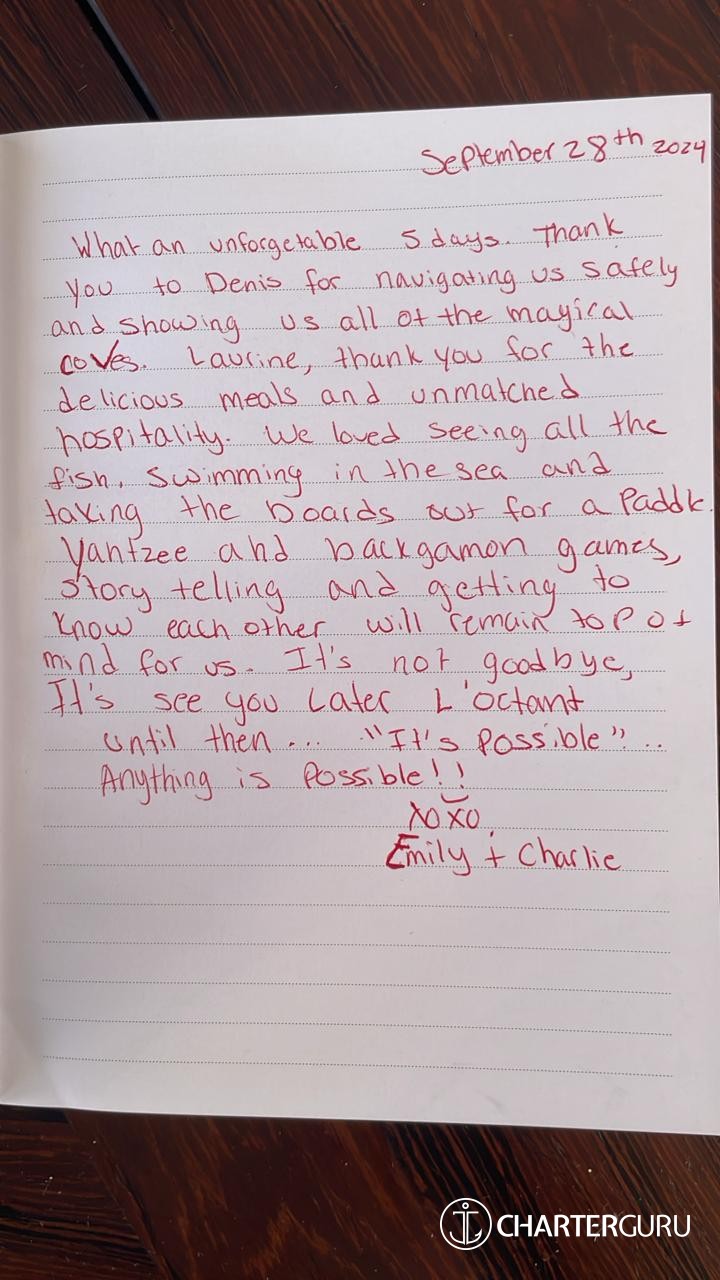 September 28th 2024
What an unforgetable 5 days. Thank
you to Denis for navigating us safely
and showing us all of the magical
coves. Laurine, thank you for the
delicious meals and unmatched
hospitality. We loved seeing all the
fish, swimming in the sea and
taking the boards out for a Paddle.
Yahtzee and backgamon games,
story telling and getting to
know each other will remain top of
mind for us. It's not goodbye,
It's see you Later L'octant
until then... "It's possible"...
Anything is Possible!!
XOXO
Emily + Charlie
CHARTERGURU